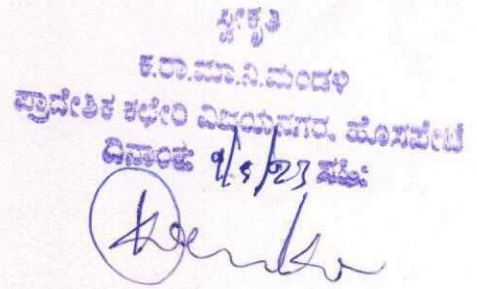 ಸ್ವೀಕೃತಿ
ಕ.ರಾ.ಮಾ.ನಿ.ಮಂಡಳಿ
ಪ್ರಾದೇಶಿಕ ಕಛೇರಿ ವಿಜಯನಗರ, ಹೊಸಪೇಟೆ
ದಿನಾಂಕ: 9/5/23 ಸಹಿ: